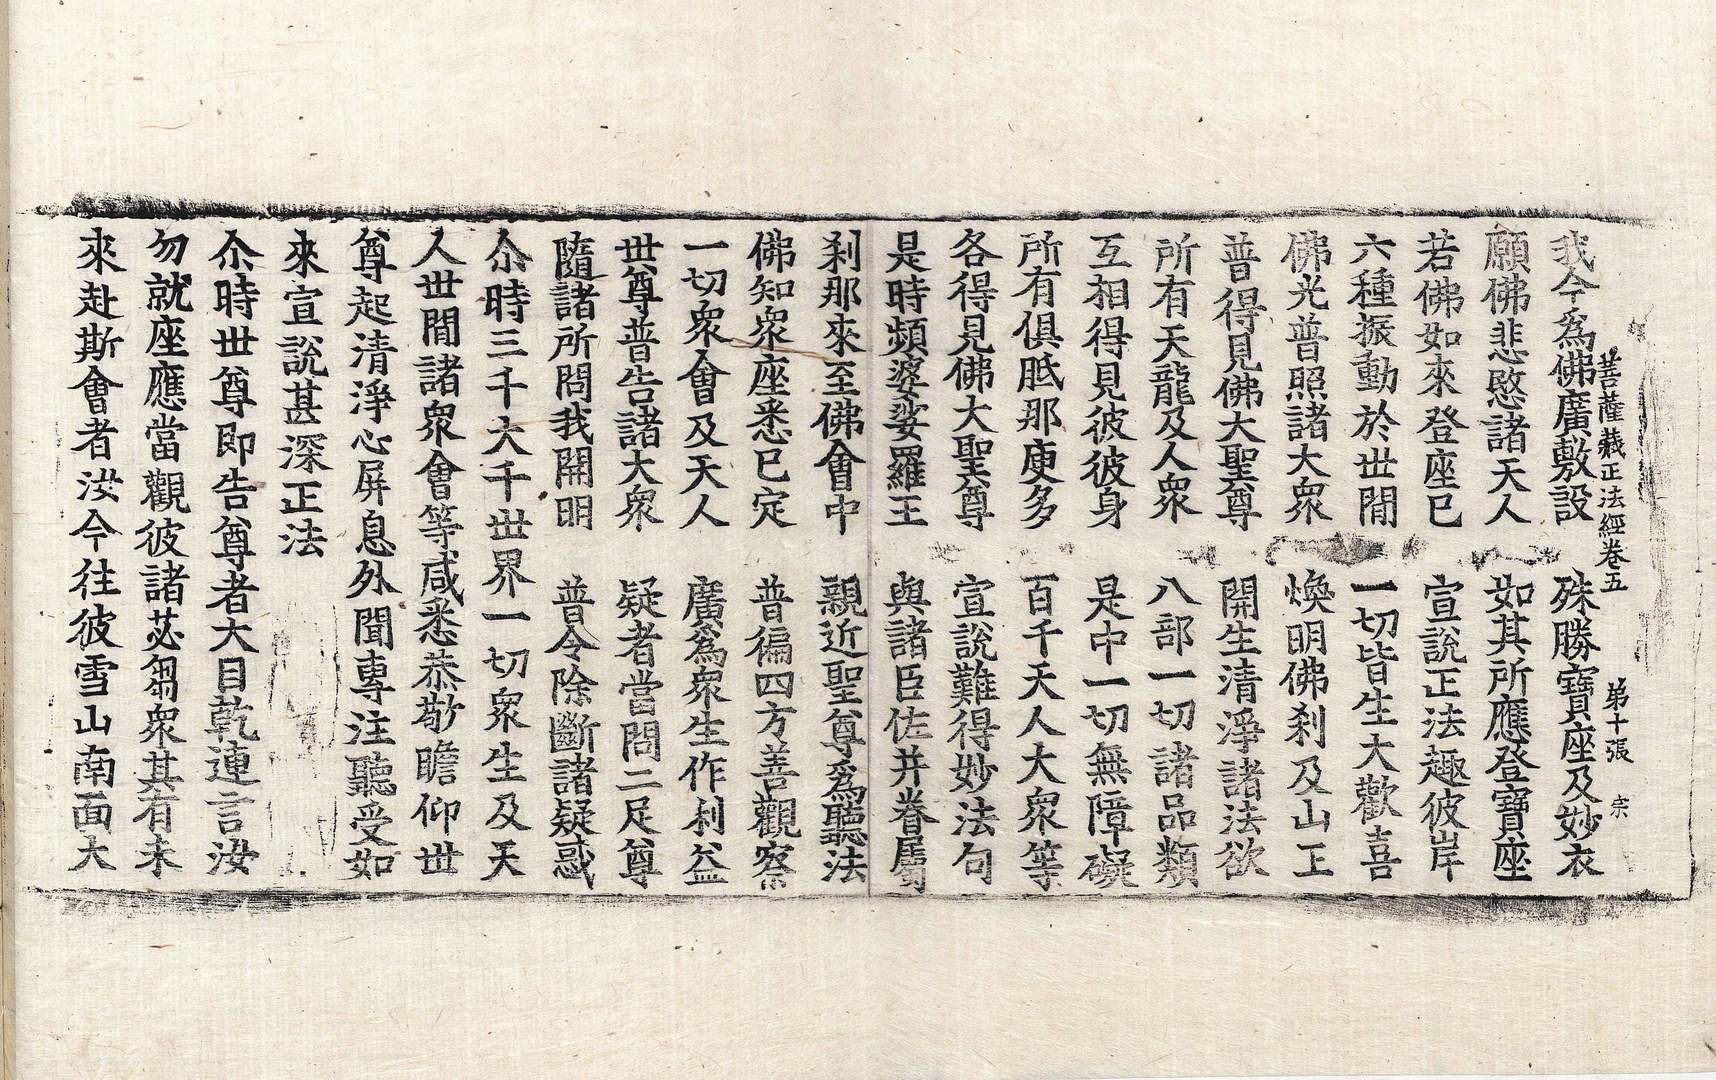 菩薩藏正法經卷五　第十張　宗
我今爲佛廣敷設　殊勝寶座及妙衣
願佛悲愍諸天人　如其所應登寶座
若佛如來登座已　宣說正法趣彼岸
六種振動於世間　一切皆生大歡喜
佛光普照諸大衆　煥明佛刹及山王
普得見佛大聖尊　開生清淨諸法欲
所有天龍及人衆　八部一切諸品類
互相得見彼彼身　是中一切無障礙
所有俱胝那庾多　百千天人大衆等
各得見佛大聖尊　宣說難得妙法句
是時頻婆娑羅王　與諸臣佐并眷屬
刹那來至佛會中　親近聖尊爲聽法
佛知衆座悉已定　普徧四方善觀察
一切衆會及天人　廣爲衆生作利益
世尊普告諸大衆　疑者當問二足尊
隨諸所問我開明　普令除斷諸疑惑
尒時三千大千世界一切衆生及天
人世間諸衆會等咸悉恭敬瞻仰世
尊起清淨心屏息外聞專注聽受如
來宣說甚深正法
尒時世尊即告尊者大目乾連言汝
勿就座應當觀彼諸苾芻衆其有未
來赴斯會者汝今往彼雪山南面大